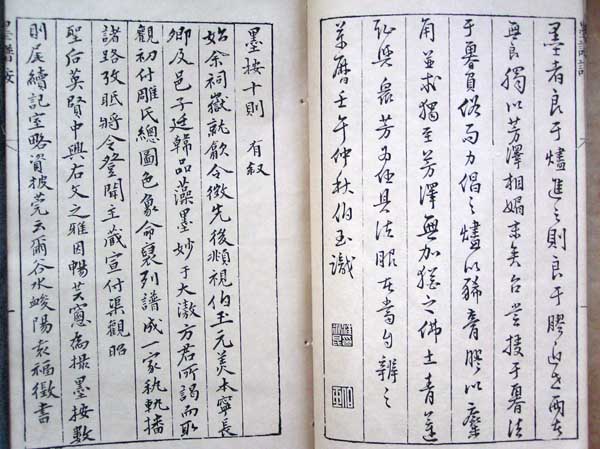 墨者良于燼進之則良于膠近世兩者
無良獨以芳澤相媚末矣
于 俗而力倡之燼以豨膏膠以麋
角並求獨至芳澤無加猶之佛土青蓮
芳 具法眼者當自辨之
萬曆壬午仲秋伯玉識
墨按十則 有叙
始余祠嶽就歙令徵先後兆視伯玉元美本寧長
卿及邑子廷韓品藻墨妙于大澉方君所謁而取
觀初付雕氏總圖色象命裒列譜成一家執軌播
諸路孜眡將令登聞主藏宣付渠觀昭
聖后英賢中興右文之雅因暢芸窻為撮墨按數
則尾續記室略資披荒云爾谷水峻陽袁福徵書